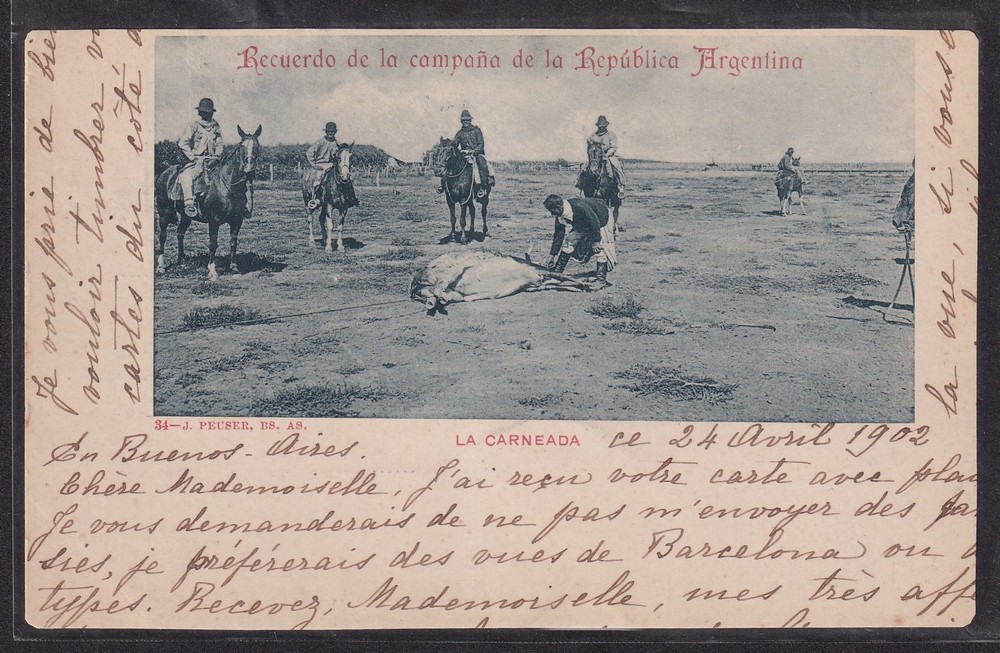 Recuerdo de la campaña de la República Argentina
34—J. PEUSER, BS. AS.
LA CARNEADA
En Buenos-Aires. ce 24 Avril 1902
Chère Mademoiselle, J'ai reçu votre carte avec plai
Je vous demanderais de ne pas m'envoyer des fa
sies, je préférerais des vues de Barcelona ou
types. Recevez, Mademoiselle, mes très aff
Je vous prie de bien
vouloir timbrer
cartes du côté
la vue, si vous